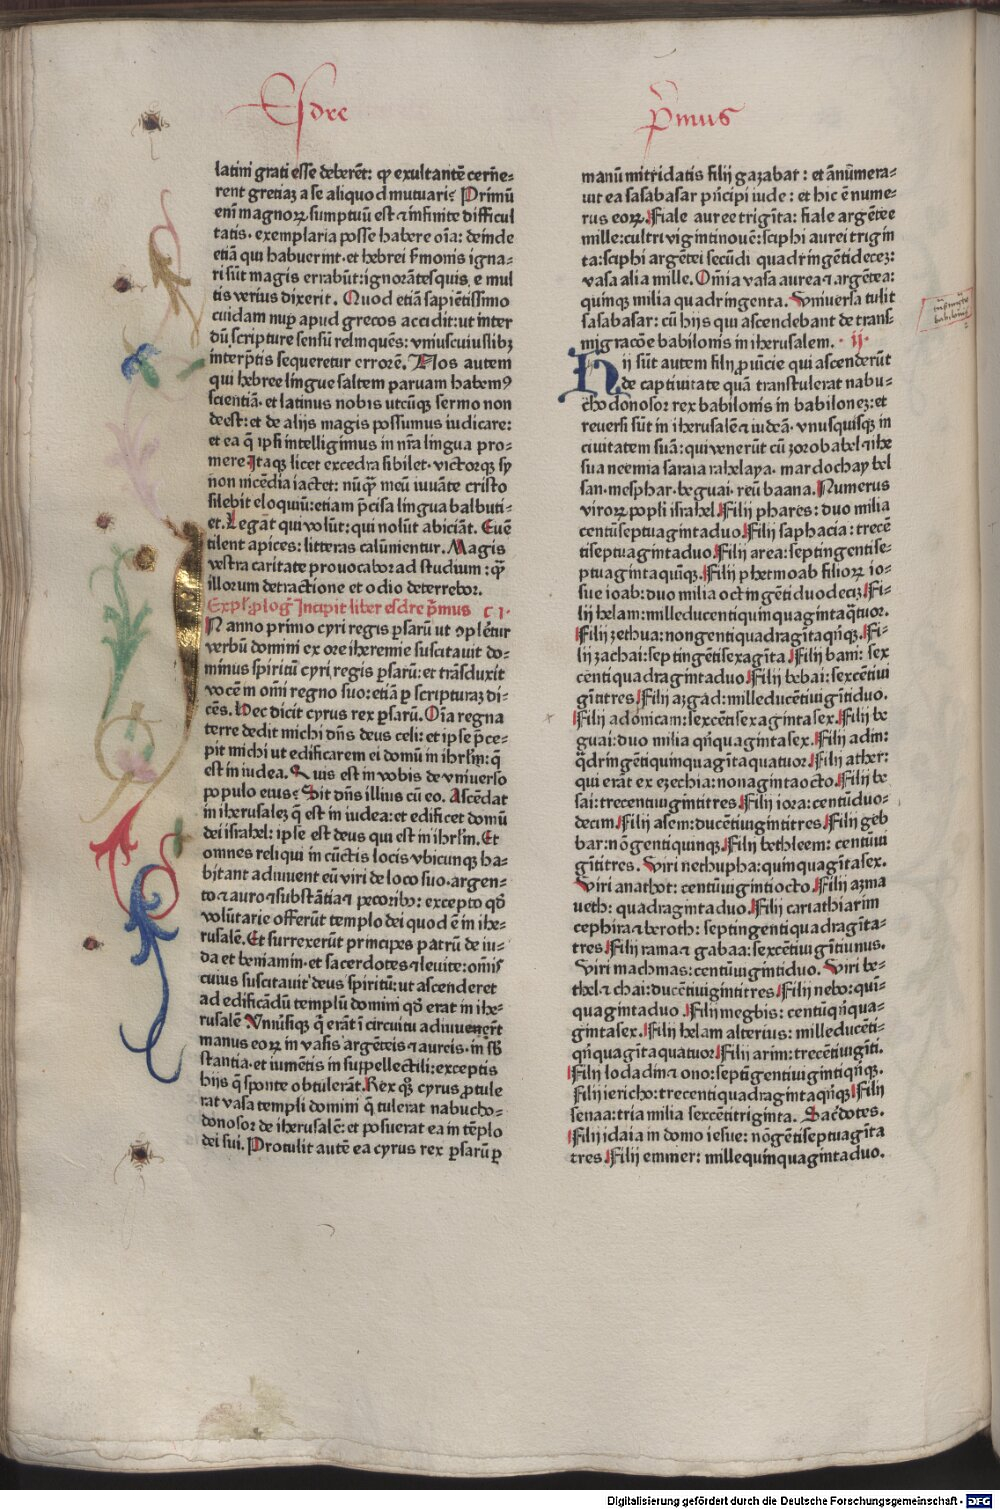 Esdre
p̄mus
latini grati esse deberēt: ꝙ exultantē cerñe-
rent greciaꝫ a se aliquod mutuari? Primū
enī magnoꝝ sumptuū est ⁊ infinite difficul
tatis. exemplaria posse habere oīa: deinde
etiā qui habuerint. et hebrei ẜmonis igna-
ri sūt magis errabūt: ignorātes quis e mul
tis verius dixerit. Quod etiā sapiētissimo
cuidam nuꝑ apud grecos accidit: ut inter
dū scripture sensū relinquēs: vniuscuiuslibꝫ
interp̄tis sequeretur errorē. Nos autem
qui hebree lingue saltem paruam habemꝰ
scientiā. et latinus nobis utcūqꝫ sermo non
deest: et de alijs magis possumus iudicare:
et ea q̄ ipsi intelligimus in nr̄a lingua pro-
mere Itaqꝫ licet excedra sibilet. victorqꝫ sy
non incēdia iactet: nūq̄ meū iuuāte cristo
silebit eloquiū: etiam p̄cisa lingua balbuti-
et. Legāt qui volūt: qui nolūt abiciāt. Euē
tilent apices: litteras calūnientur. Magis
vestra caritate prouocabor ad studium: q̄
illorum detractione et odio deterrebor.
Expl. ꝓloḡ Incipit liber esdre p̄mus c I.
IN anno primo cyri regis ꝑsarū ut ꝯplētur
verbū domini ex ore iheremie suscitauit do-
minus spiritū cyri regis ꝑsarū: et trāsduxit
vocē in omī regno suo: etiā ꝑ scripturaꝫ di-
cēs. Hec dicit cyrus rex ꝑsarū. Oīa regna
terre dedit michi dn̄s deus celi: et ipse p̄ce-
pit michi ut edificarem ei domū in ihrlm̄: q̄
est in iudea. Quis est in vobis de vniuerso
populo eius? Sit dn̄s illius cū eo. Ascēdat
in iherusaleꝫ q̄ est in iudea: et edificet domū
dei israhel: ipse est deus qui est in ihrlm̄. Et
omnes reliqui in cūctis locis vbicunqꝫ ha-
bitant adiuuent eū viri de loco suo. argen-
to ⁊ auro ⁊ substātia ⁊ pecoribꝰ: excepto qd̄
volūtarie offerūt templo dei quod ē in ihe-
rusalē. Et surrexerūt principes patrū de iu-
da et beniamin. et sacerdotes ⁊ leuite: omīs
cuius suscitauit deus spiritū: ut ascenderet
ad edificādū templū domini qd̄ erat in ihe-
rusalē Vniuēsiqꝫ q̄ erāt ī circuitu adiuuerēt
manus eoꝝ in vasis argēteis ⁊ aureis. in sb̄
stantia. et iumētis in suppellectili: exceptis
hijs q̄ sponte obtulerāt. Rex qꝫ cyrus ꝓtule
rat vasa templi domini q̄ tulerat nabucho-
donosor de iherusalē: et posuerat ea in tēplo
dei sui. Protulit autē ea cyrus rex ꝑsarū ꝑ
manū mitridatis filij gazabar: et ānūmera-
uit ea sasabasar pn̄cipi iude: et hic ē nume-
rus eoꝝ. Fiale auree trigīta: fiale argētee
mille: cultri vigintinouē: sciphi aurei trigin
ta: sciphi argētei secūdi quadringētidecez:
vasa alia mille. Om̄ia vasa aurea ⁊ argētea:
quinqꝫ milia quadringenta. Vniuersa tulit
sasabasar: cū hijs qui ascendebant de trans-
migracōe babilonis in iherusalem. ii.
Hij sūt autem filij ꝓuīcie qui ascenderūt
de captiuitate quā transtulerat nabu-
chodonosor rex babilonis in babilonez: et
reuersi sūt in iherusalē ⁊ iudeā. vnusquisqꝫ in
ciuitatem suā: qui venerūt cū zorobabel ⁊ ihe
sua neemia saraia rahelaya. mardochay bel
san. mesphar. beguai. reū baana. Numerus
viroꝝ popli israhel Filij phares: duo milia
centūseptuagintaduo Filij saphacia: trecē
tiseptuagintaduo Filij area: septingentise-
ptuagintaquīqꝫ. Filij phetmoab filioꝝ io-
sue ioab: duo milia octingētiduodeciꝫ Fi-
lij helam: milleducentiquinquagintaq̄tuor.
Filij zethua: nongentiquadragītaqn̄qꝫ. Fi-
lij zachai: septingētisexagīta Filij bani: sex
cētiquadragintaduo Filij bebai: sexcētiui
gītitres Filij azgad: milleducētiuigītiduo.
Filij adonicam: sexcētisexagintasex. Filij be
guai: duo milia qn̄quagintasex. Filij adin:
q̄dringētiquinquagītaquatuor Filij ather:
qui erāt ex ezechia: nonagintaocto. Filij be
sai: trecentiuigintitres Filij iora: centūduo-
decim. Filij asem: ducētiuigintitres Filij geb
bar: nōgentiquinqꝫ. Filij bethleem: centūui
gītitres. Viri nethupha: quinquagītasex.
Viri anathot: centūuigintiocto. Filij azma
ueth: quadragintaduo. Filij cariathiarim
cephira ⁊ beroth: septingentiquadragīta-
tres Filij rama ⁊ gabaa: sexcētiuigītiunus.
Viri machmas: centūuigintiduo. Viri be-
thel ⁊ chai: ducētiuigintitres Filij nebo: quī-
quagintaduo Filij megbis: centūqn̄qua-
gintasex. Filij helam alterius: milleducēti-
qn̄quagītaquatuor Filij arim: trecētiuigīti.
Filij lodadin ⁊ ono: septīgentiuigintiqn̄qꝫ.
Filij iericho: trecentiquadragintaqn̄qꝫ Filij
senaa: tria milia sexcētitriginta. Sac̄dotes.
Filij idaia in domo iesue: nōgētiseptuagīta
tres Filij emmer: millequinquagintaduo.
Digitalisierung gefördert durch die Deutsche Forschungsgemeinschaft - DFG